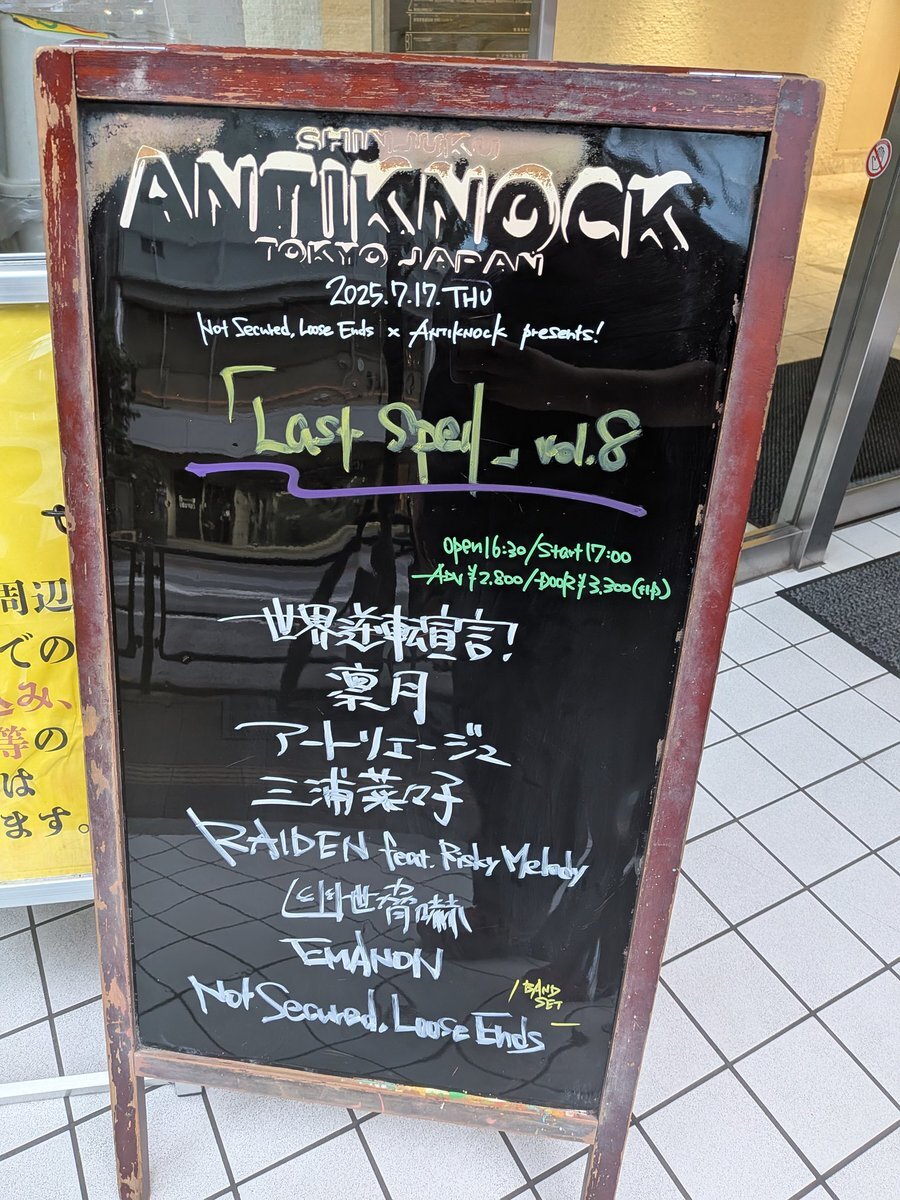 SHINJUKU
ANTIKNOCK
TOKYO JAPAN
2025.7.17.THU
Not Secured, Loose Ends x ANTIKNOCK presents!
「Last Spell」vol.8
open16:30/start17:00
ADV ¥2.800/DOOR ¥3,300(+1D)
世界逆転宣言!
凛月
アートリェージュ
三浦菜々子
RAIDEN feat. Risky Melody
幽世脅嚇
EMANON
BAND SET
Not Secured, Loose Ends
周辺
での
込み、
等の
は
ます。